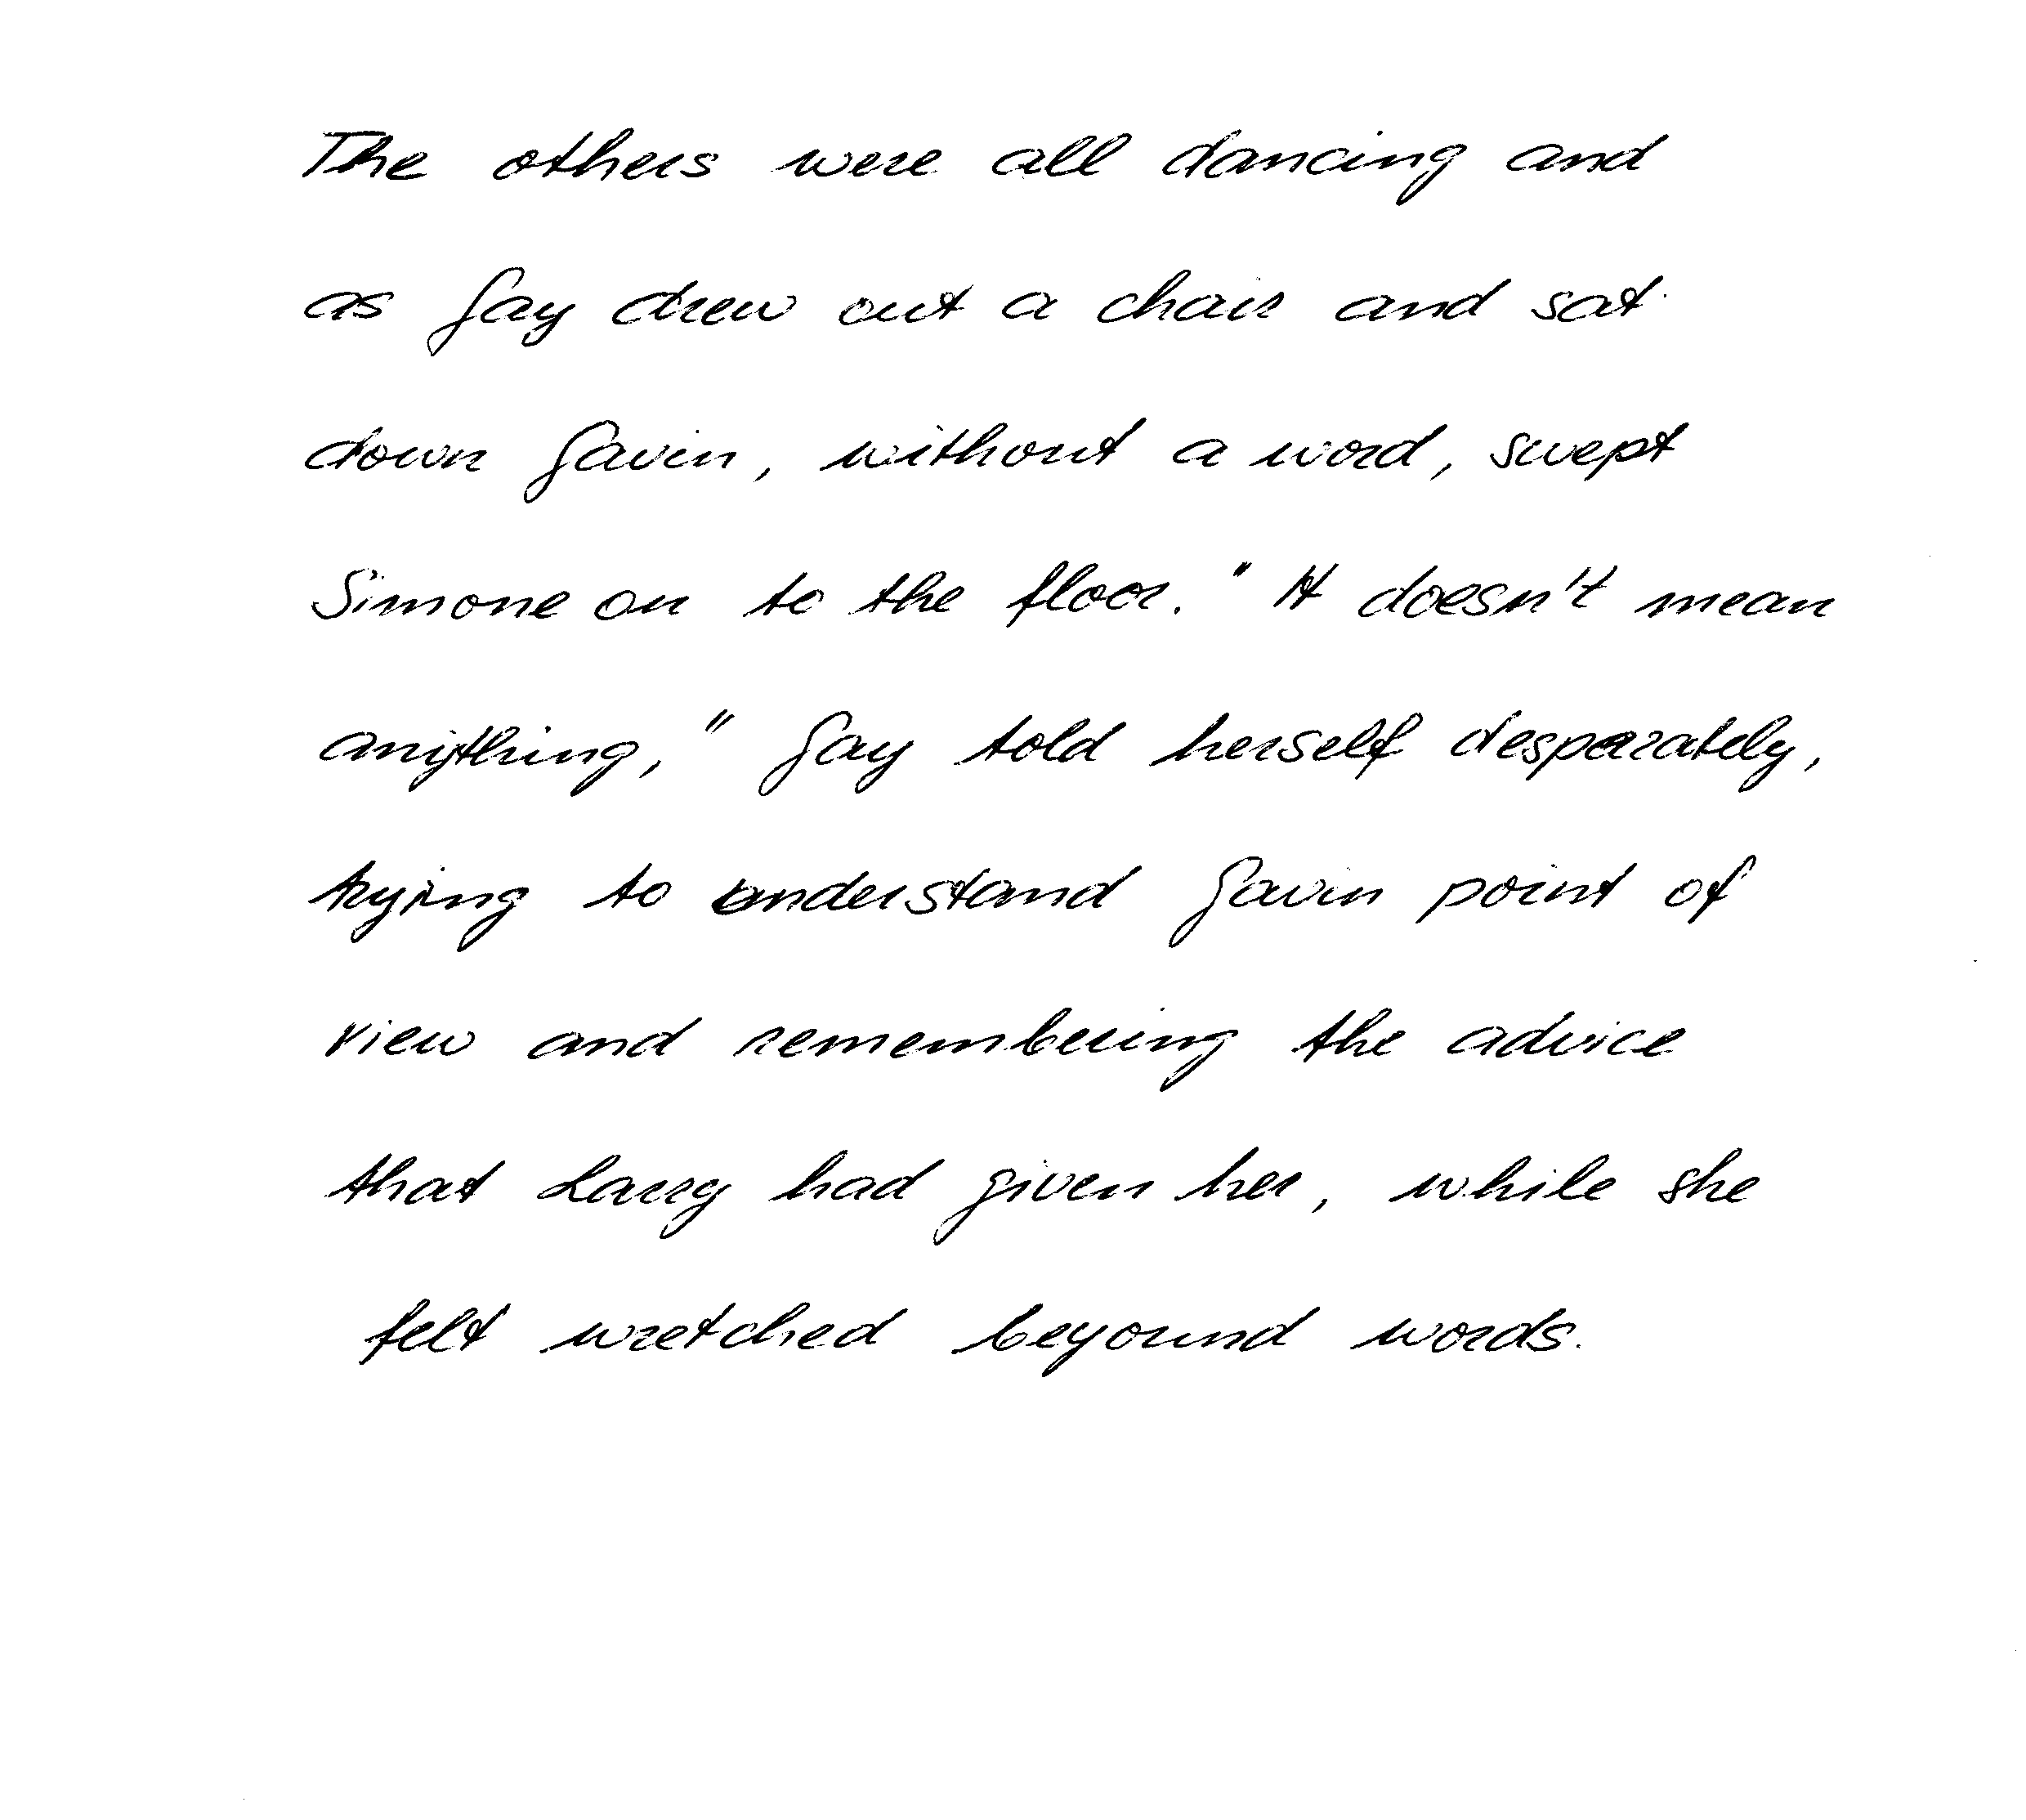 The others were all dancing and
as Gay drew out a chair and sat
down Gavin, without a word, swept
Simone on to the floor. " It doesn't mean
anything," Gay told herself desparately,
trying to understand Gavin point of
view and remembering the advice
that Larry had given her, while she
felt wretched beyound words.